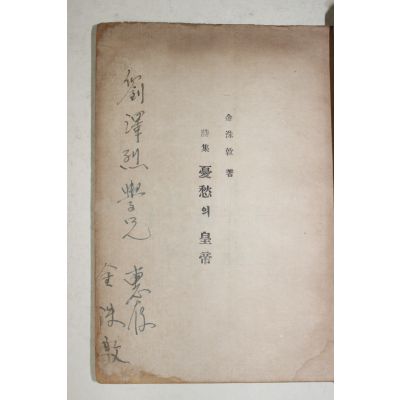 金洙敦 著
詩集 憂愁의 皇帝
劉澤烈學兄
惠存
金洙敦